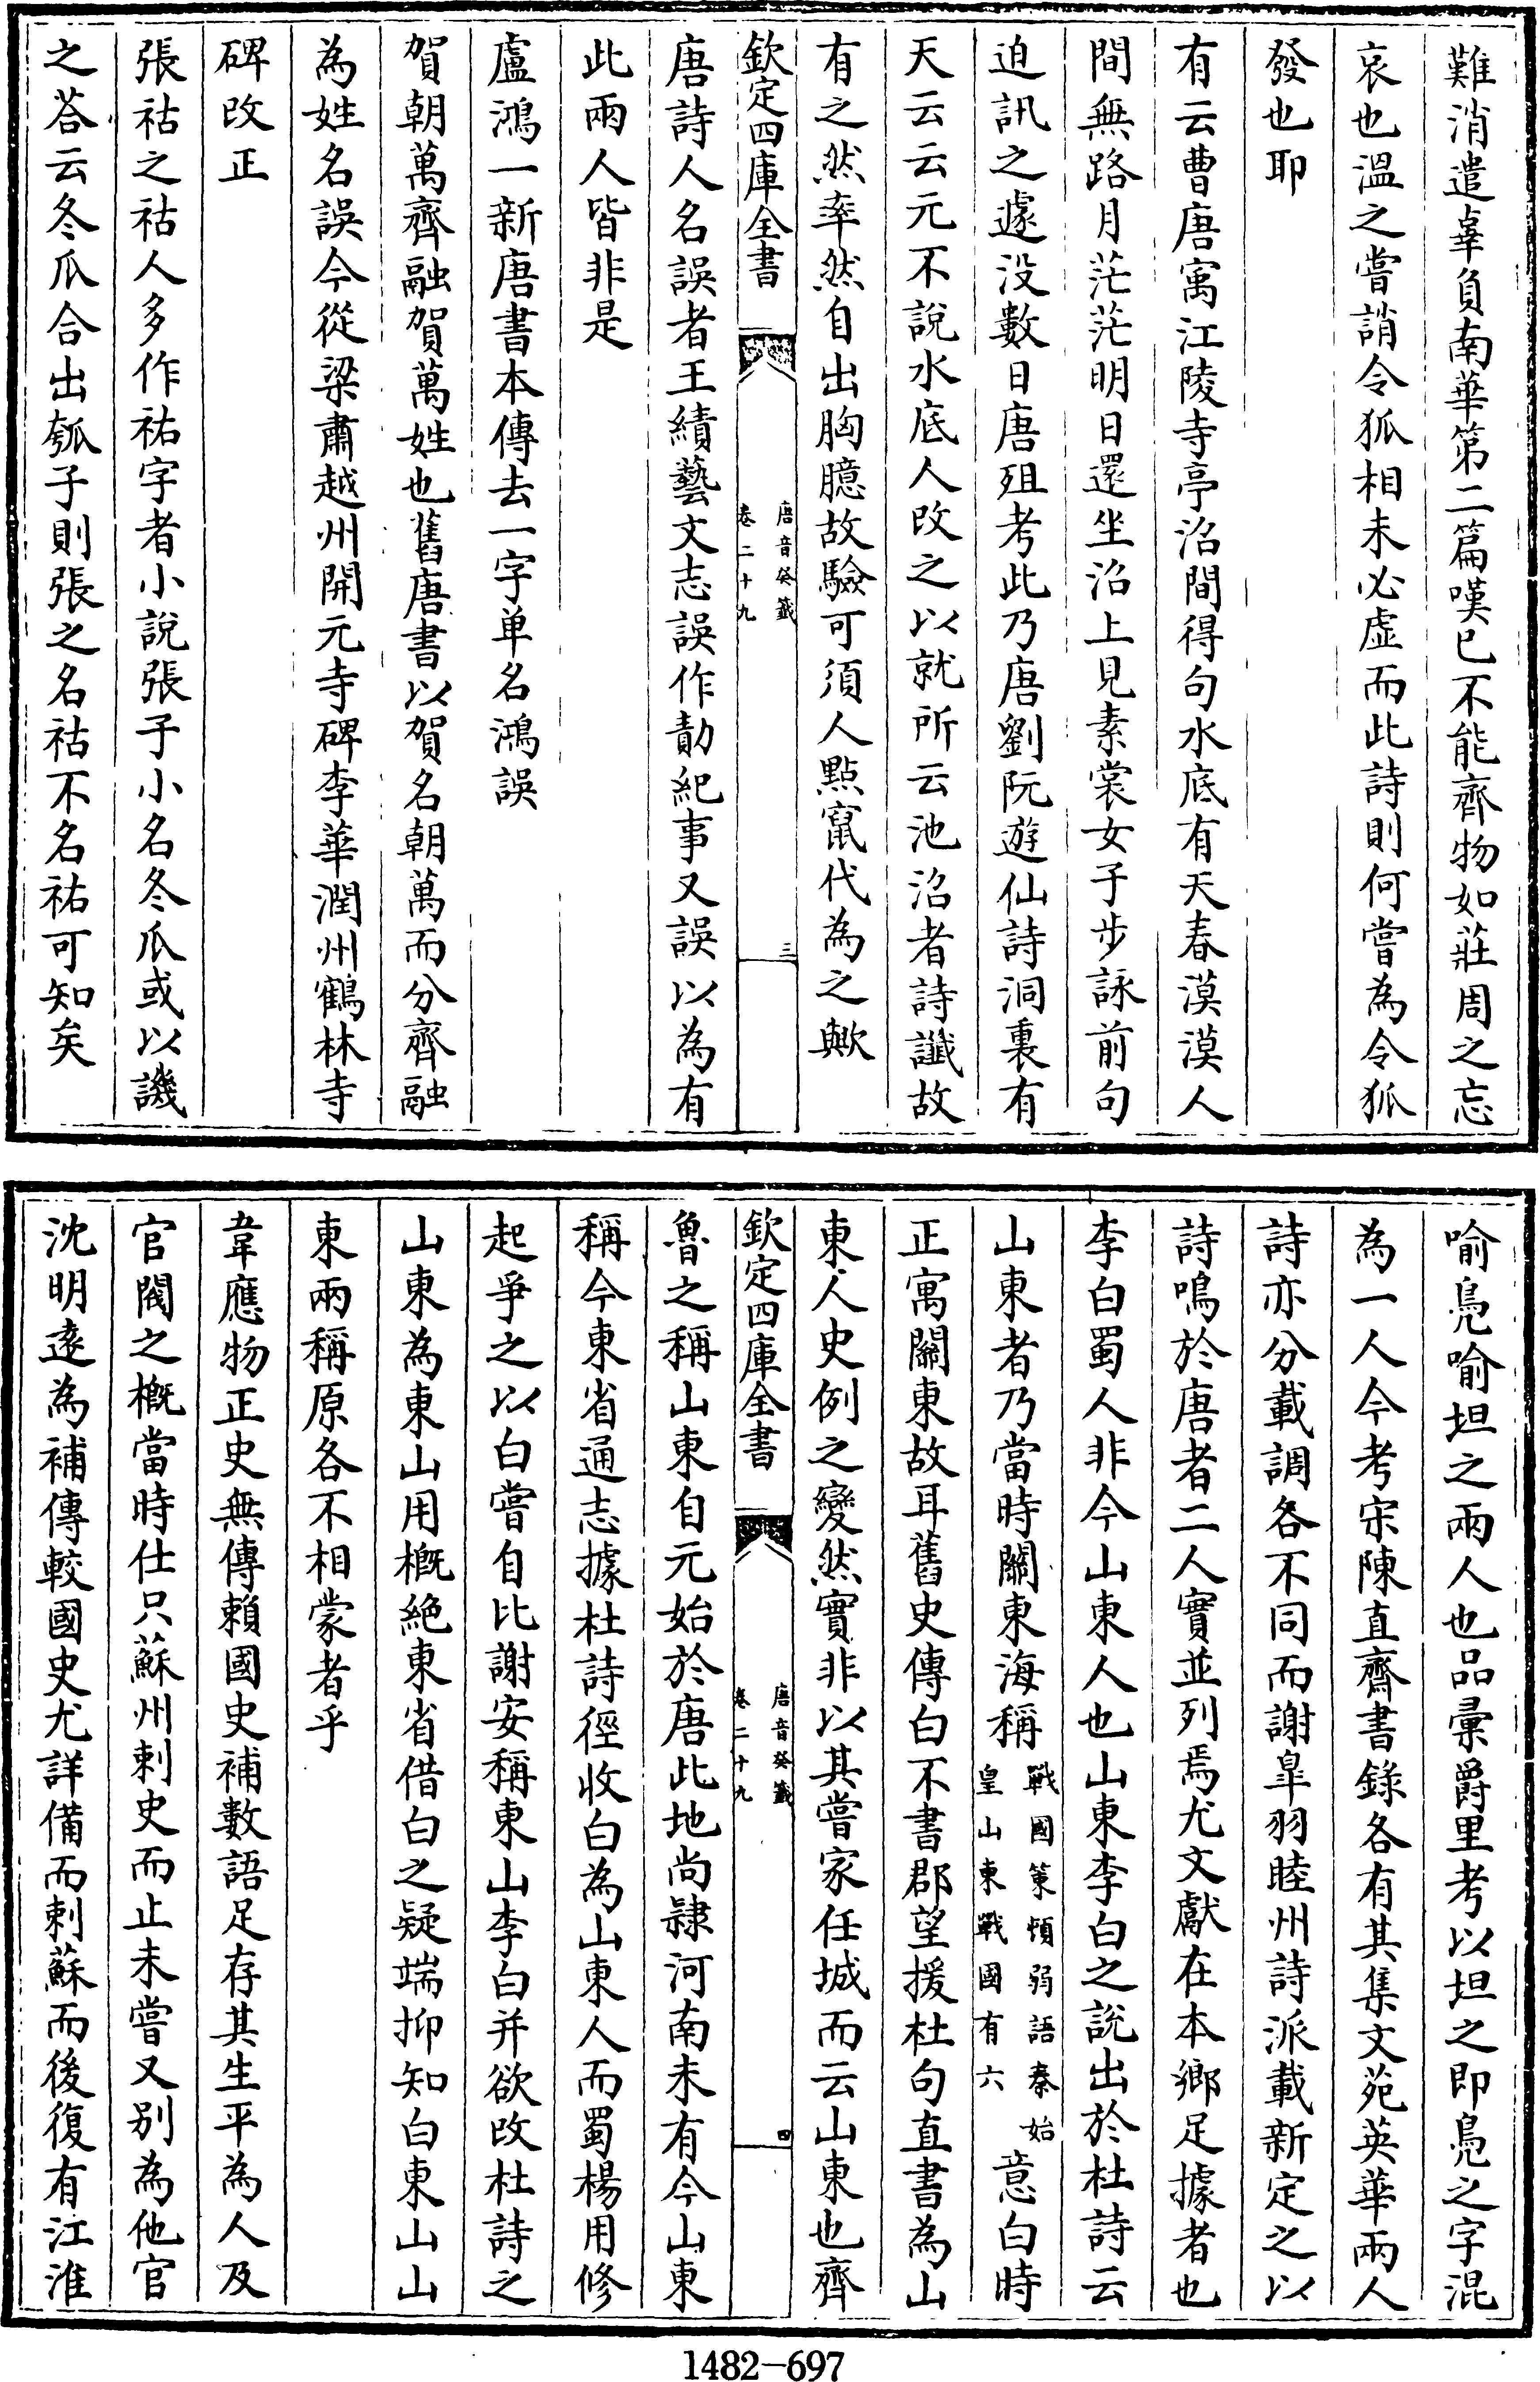 難消遣辜負南華第二篇嘆已不能齊物如莊周之忘
哀也溫之嘗誚令狐相未必虛而此詩則何嘗為令狐
發也耶
有云曹唐寓江陵寺亭沼間得句水底有天春漠漠人
間無路月茫茫明日還坐沼上見素裳女子步詠前句
迫訊之遽没數日唐殂考此乃唐劉阮遊仙詩洞裏有
天云云元不說水底人改之以就所云池沼者詩讖故
有之然率然自出胸臆故驗可須人點竄代為之歟
欽定四庫全書
唐音癸籤
卷二十九
三
唐詩人名誤者王績藝文志誤作勣紀事又誤以為有
此兩人皆非是
盧鴻一新唐書本傳去一字单名鴻誤
賀朝萬齊融賀萬姓也舊唐書以賀名朝萬而分齊融
為姓名誤今從梁肅越州開元寺碑李華潤州鶴林寺
碑改正
張祜之祜人多作祐字者小說張子小名冬瓜或以譏
之荅云冬瓜合出瓠子則張之名祜不名祐可知矣
喻鳧喻坦之兩人也品彚爵里考以坦之即鳧之字混
為一人今考宋陳直齋書錄各有其集文苑英華兩人
詩亦分載調各不同而謝臯羽睦州詩派載新定之以
詩鳴於唐者二人實並列焉尤文獻在本鄉足據者也
李白蜀人非今山東人也山東李白之說出於杜詩云
山東者乃當時關東海稱戰國策頓弱語秦始皇山東戰國有六意白時
正寓關東故耳舊史傳白不書郡望援杜句直書為山
東人史例之變然實非以其嘗家任城而云山東也齊
欽定四庫全書
唐音癸籤
卷二十九
四
魯之稱山東自元始於唐此地尚隸河南未有今山東
稱今東省通志據杜詩徑收白為山東人而蜀楊用修
起爭之以白嘗自比謝安稱東山李白并欲改杜詩之
山東為東山用概絶東省借白之疑端抑知白東山山
東兩稱原各不相蒙者乎
韋應物正史無傳賴國史補數語足存其生平為人及
官閥之概當時仕只蘇州刺史而止未嘗又别為他官
沈明遠為補傳較國史尤詳備而刺蘇而後復有江淮
1482-697